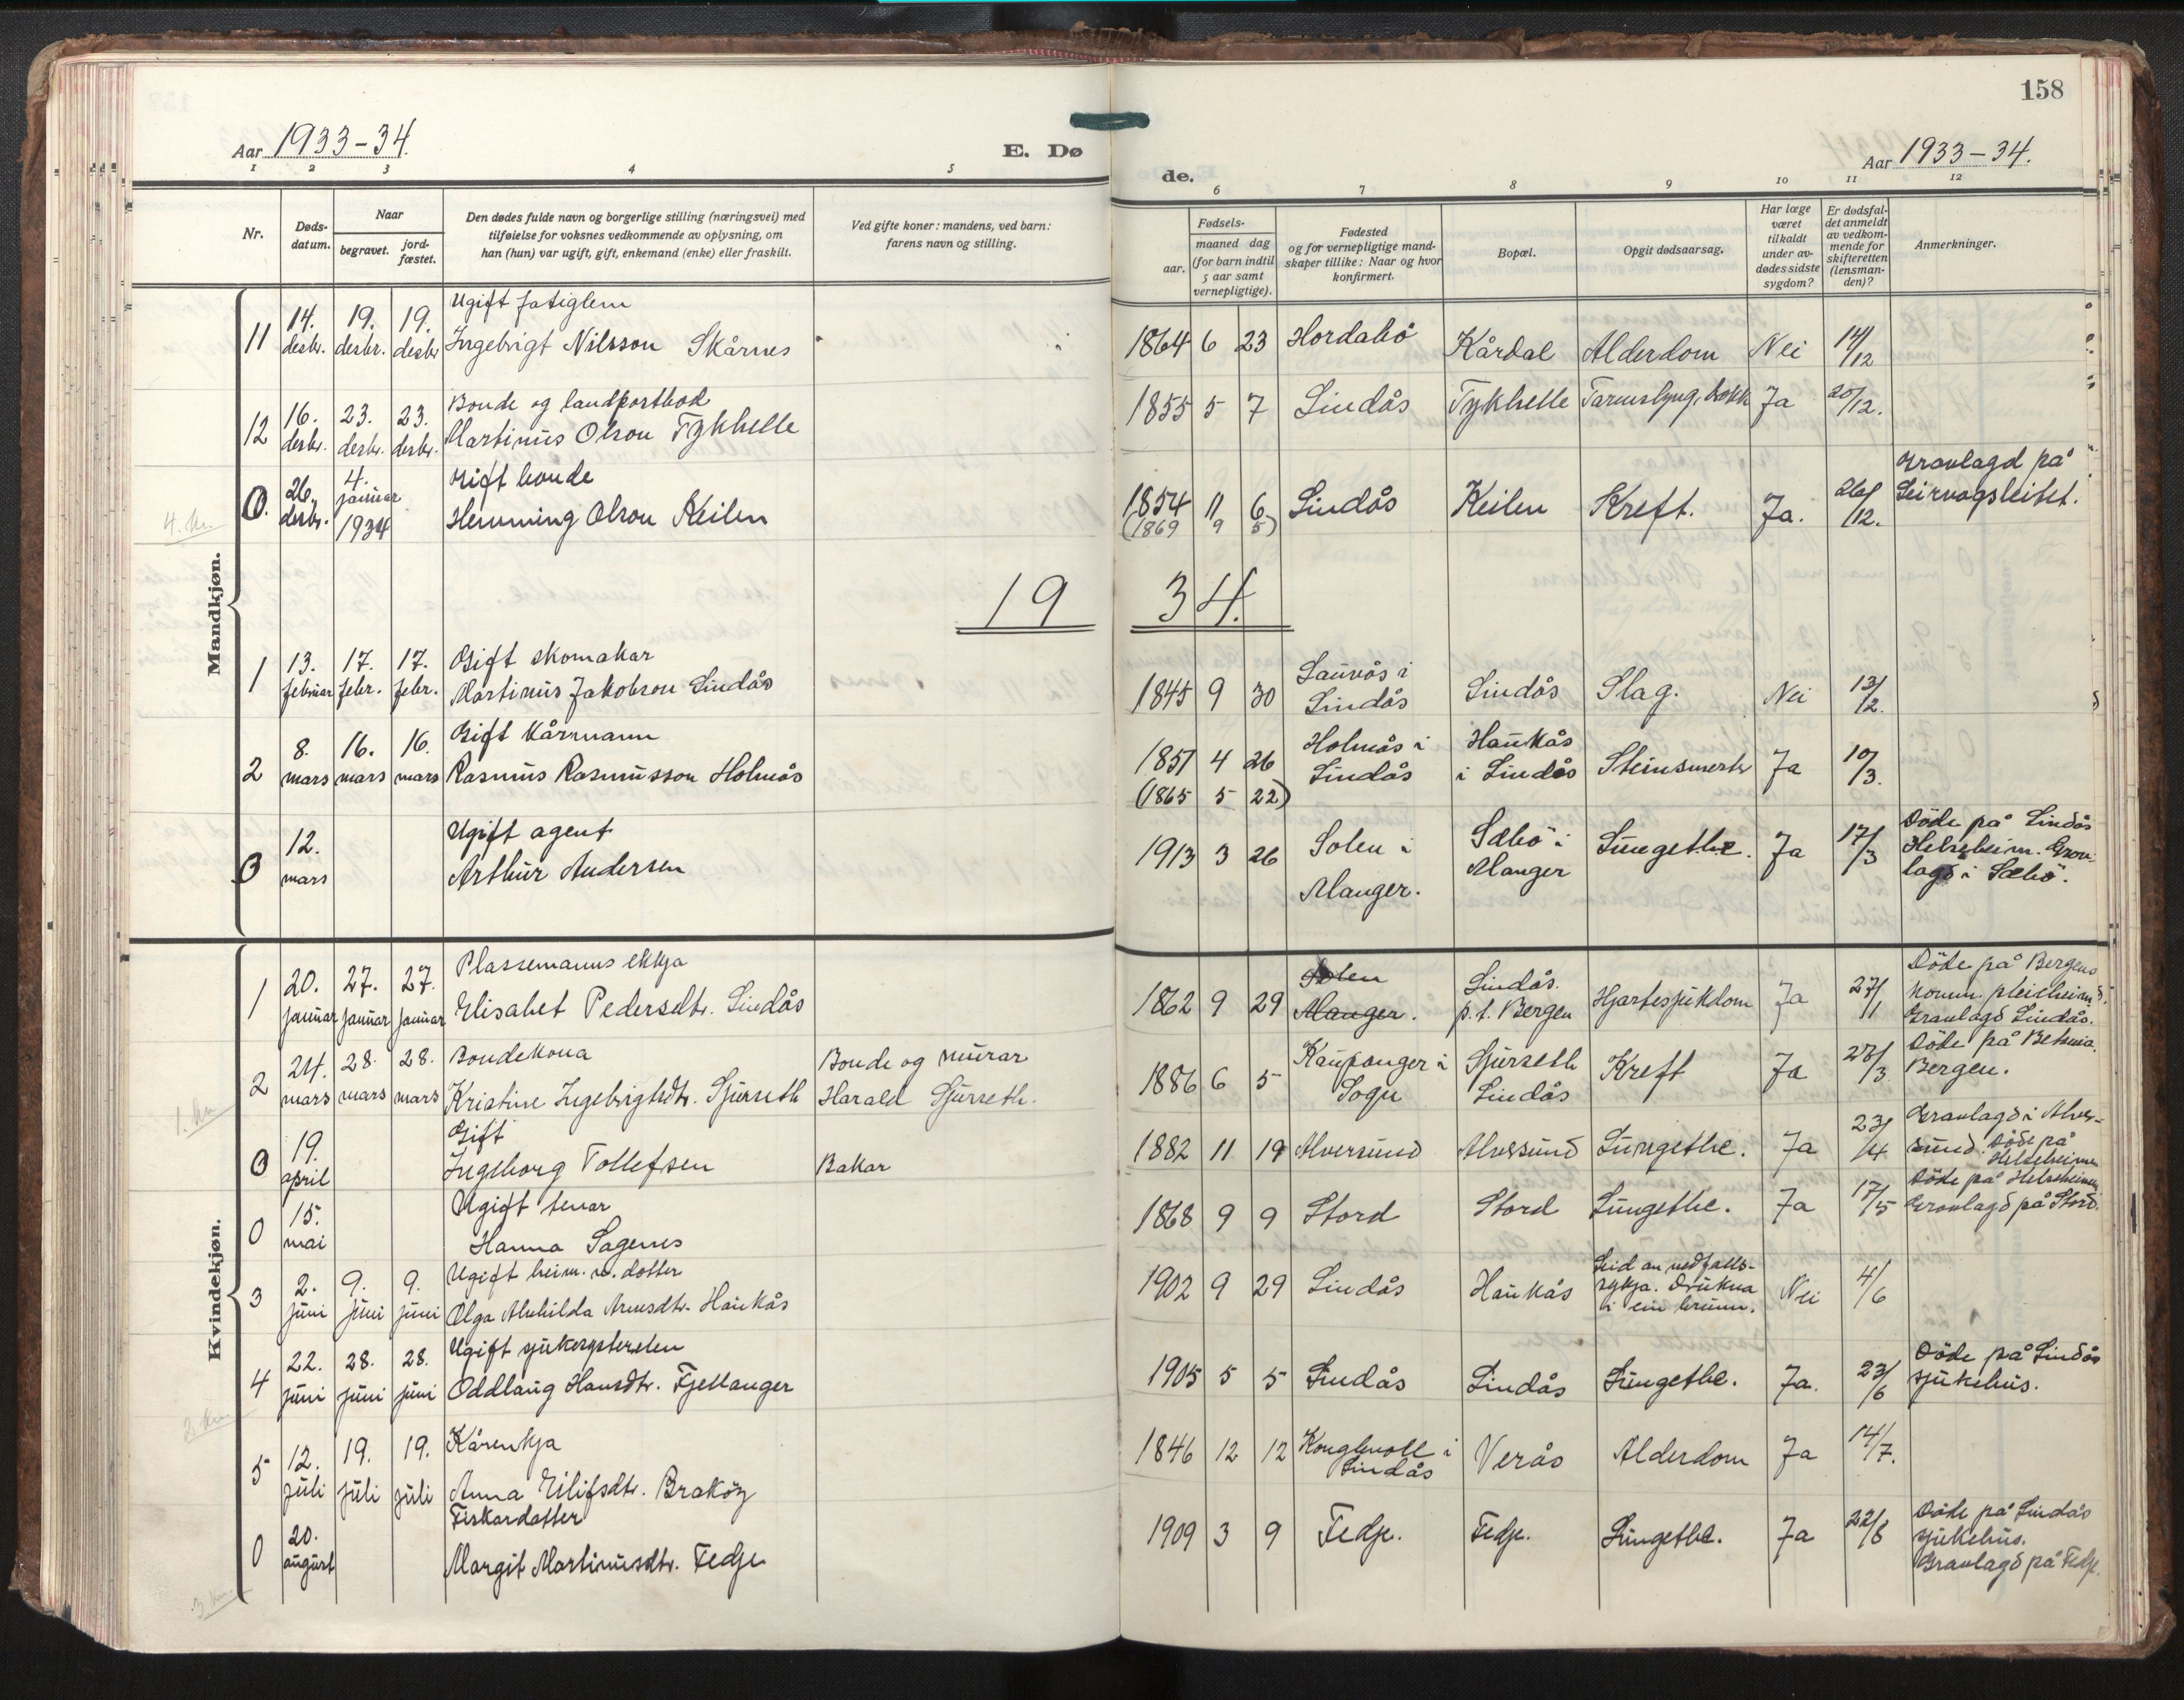 158
Aar 1933-34.
E. Dø
de.
Aar 1933-34.
1 2 3 4 5
6 7 8 9 10 11 12
Nr.
Døds-
datum.
Naar
begravet.
jord-
fæstet.
Den dødes fulde navn og borgerlige stilling (næringsvei) med
tilføielse for voksnes vedkommende av oplysning, om
han (hun) var ugift, gift, enkemand (enke) eller fraskilt.
Ved gifte koner: mandens, ved barn:
farens navn og stilling.
Fødsels-
aar.
maaned dag
(for barn indtil
5 aar samt
vernepligtige).
Fødested
og for vernepligtige mand-
skaper tillike: Naar og hvor
konfirmert.
Bopæl.
Opgit dødsaarsag.
Har læge
været
tilkaldt
under av-
dødes sidste
sygdom?
Er dødsfal-
det anmeldt
av vedkom-
mende for
skifteretten
(lensman-
den)?
Anmerkninger.
Mandkjøn.
Ugift fatiglem
11 14. desbr. 19. desbr. 19. desbr Ingebrigt Nilsson Skårnes 1864 6 23 Hordabö Kårdal Alderdom Nei 14/12
Bonde og landpostbod
12 16. desbr. 23. desbr. 23. desbr. Martinus Olson Tykhelle 1855 5 7 Lindås Tykhelle Ja 20/12.
Gift bonde
0. 26. desbr. 4. januar 1934 Hemming Olson Keilen 1854 11 6 Lindås Keilen Kreft. Ja. 26/12. Gravlagd på
Leirvagsleitet.
(1869 9 5)
4. kv.
19 34.
Gift skomakar
1 13. februar 17. febr. 17. febr. Martinus Jakobson Lindås 1845 9 30 Lauvås i
Lindås Lindås Slag. Nei 13/2.
Gift kårmann
2 8. mars 16. mars 16. mars Rasmus Rasmusson Holmås 1851 4 26 Holmås i
Lindås Haukås
i Lindås Ja 10/3.
(1865 5 22)
Ugift agent
0 12. mars Arthur Andersen 1913 3 26 Solen i
Manger. Sæbö i
Manger Lungetbc. Ja 17/3 Döde på Lindås
Helseheim. Grav-
lagd i Sæbö.
Kvindekjøn.
Plassemanns ekkja
1 20. januar 27. januar 27. januar Elisabet Pedersdtr. Lindås 1862 9 29 Solen
Manger. Lindås.
p.t. Bergen Hjartesjukdom Ja 27/1 Döde på Bergens
komm. pleieheim.
Gravlagd Lindås.
Bondekona
2 24. mars 28. mars 28. mars Kristine Ingebrigtsdtr. Sjurseth Bonde og murar
Harald Sjurseth. 1886 6 5 Kaupanger i
Sogn Sjurseth
Lindås Kreft Ja 28/3 Döde på Betania.
Bergen.
1. kv.
Gift
0 19. april Ingeborg Tollefsen Bakar 1882 11 19 Alversund Alversund Lungetbc. Ja 23/4 Gravlagd i Alver-
sund. Döde på
Helseheimen
Ugift tenar
0 15. mai Hanna Sagenes 1868 9 9 Stord Stord Lungetbc. Ja 17/5 Döde på Helseheimen
Gravlagd på Stord.
Ugift heim. v. dotter
3 2. juni 9. juni 9. juni Olga Alvhilda Arnesdtr. Haukås 1902 9 29 Lindås Haukås Leid av nedfalls-
sykja. Drukna
i ein brunn. Nei 4/6
Ugift sjukesysterelev
4 22. juni 28. juni 28. juni Oddlaug Hansdtr. Fjellanger 1905 5 5 Lindås Lindås Lungetbc. Ja. 23/6 Döde på Lindås
sjukehus.
2. kv.
Kårenkja
5 12. juli 19. juli 19. juli Anna Eilifsdtr. Braköy 1846 12 12 Konglevoll i
Lindås Verås Alderdom Ja 14/7.
Fiskardotter
0 20. august Margit Martinusdtr. Fedje 1909 3 9 Fedje. Fedje. Lungetbc. Ja 22/8 Döde på Lindås
sjukehus.
Gravlagd på Fedje.
3. kv.